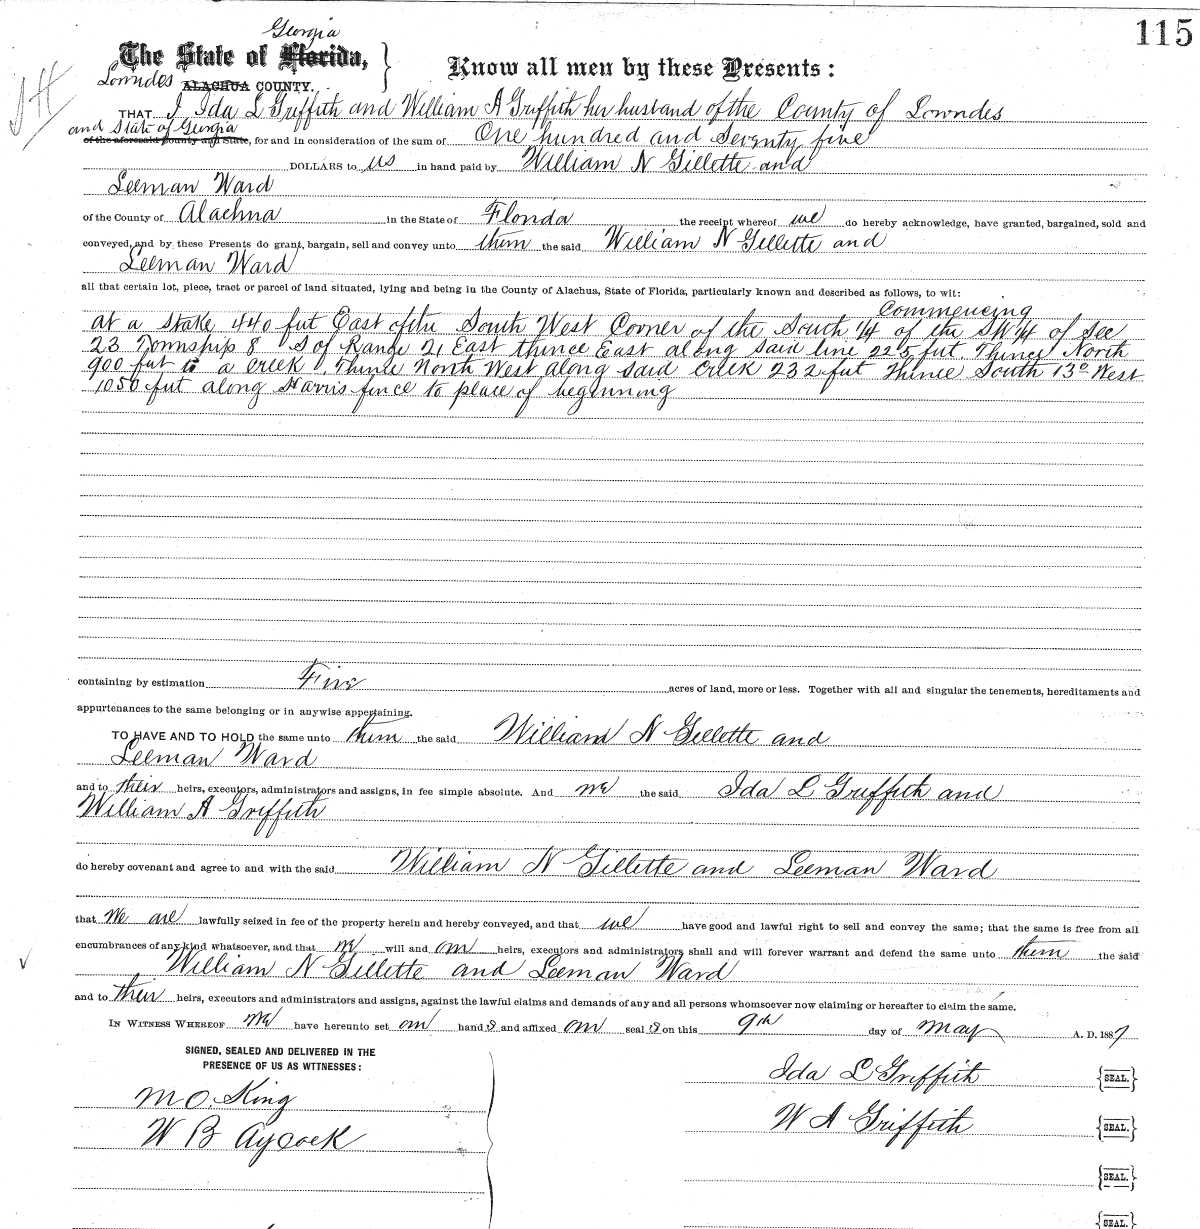 115
Georgia
The State of Florida,
Know all men by these Presents:
Lowndes ALACHUA COUNTY.
THAT I Ida L Griffith and William A Griffith her husband of the County of Lowndes
and State of Georgia
of the aforesaid County and State, for and in consideration of the sum of One hundred and Seventy five
DOLLARS to us in hand paid by William N Gillette and
Leeman Ward
of the County of Alachua in the State of Florida the receipt whereof we do hereby acknowledge, have granted, bargained, sold and
conveyed, and by these Presents do grant, bargain, sell and convey unto them the said William N Gillette and
Leeman Ward
all that certain lot, piece, tract or parcel of land situated, lying and being in the County of Alachua, State of Florida, particularly known and described as follows, to wit:
Commencing
at a stake 440 feet East of the South West Corner of the South 1/4 of the SW 1/4 of Sec
23 Township 8 S of Range 21 East thence East along said line 225 feet Thence North
900 feet to a creek. Thence North West along said Creek 232 feet Thence South 13° West
1050 feet along Harris fence to place of beginning
containing by estimation Five acres of land, more or less. Together with all and singular the tenements, hereditaments and
appurtenances to the same belonging or in anywise appertaining.
TO HAVE AND TO HOLD the same unto them the said William N Gillette and
Leeman Ward
and to their heirs, executors, administrators and assigns, in fee simple absolute. And we the said Ida L Griffith and
William A Griffith
do hereby covenant and agree to and with the said William N Gillette and Leeman Ward
that We are lawfully seized in fee of the property herein and hereby conveyed, and that we have good and lawful right to sell and convey the same; that the same is free from all
encumbrances of any kind whatsoever, and that we will and our heirs, executors and administrators shall and will forever warrant and defend the same unto them the said
William N Gillette and Leeman Ward
and to their heirs, executors and administrators and assigns, against the lawful claims and demands of any and all persons whomsoever now claiming or hereafter to claim the same.
IN WITNESS WHEREOF We have hereunto set our hand s and affixed our seal s on this 9th day of May A. D. 1887
SIGNED, SEALED AND DELIVERED IN THE
PRESENCE OF US AS WITNESSES:
Ida L Griffith {SEAL.}
M O. King
W A Griffith {SEAL.}
W B Aycock
{SEAL.}
{SEAL.}